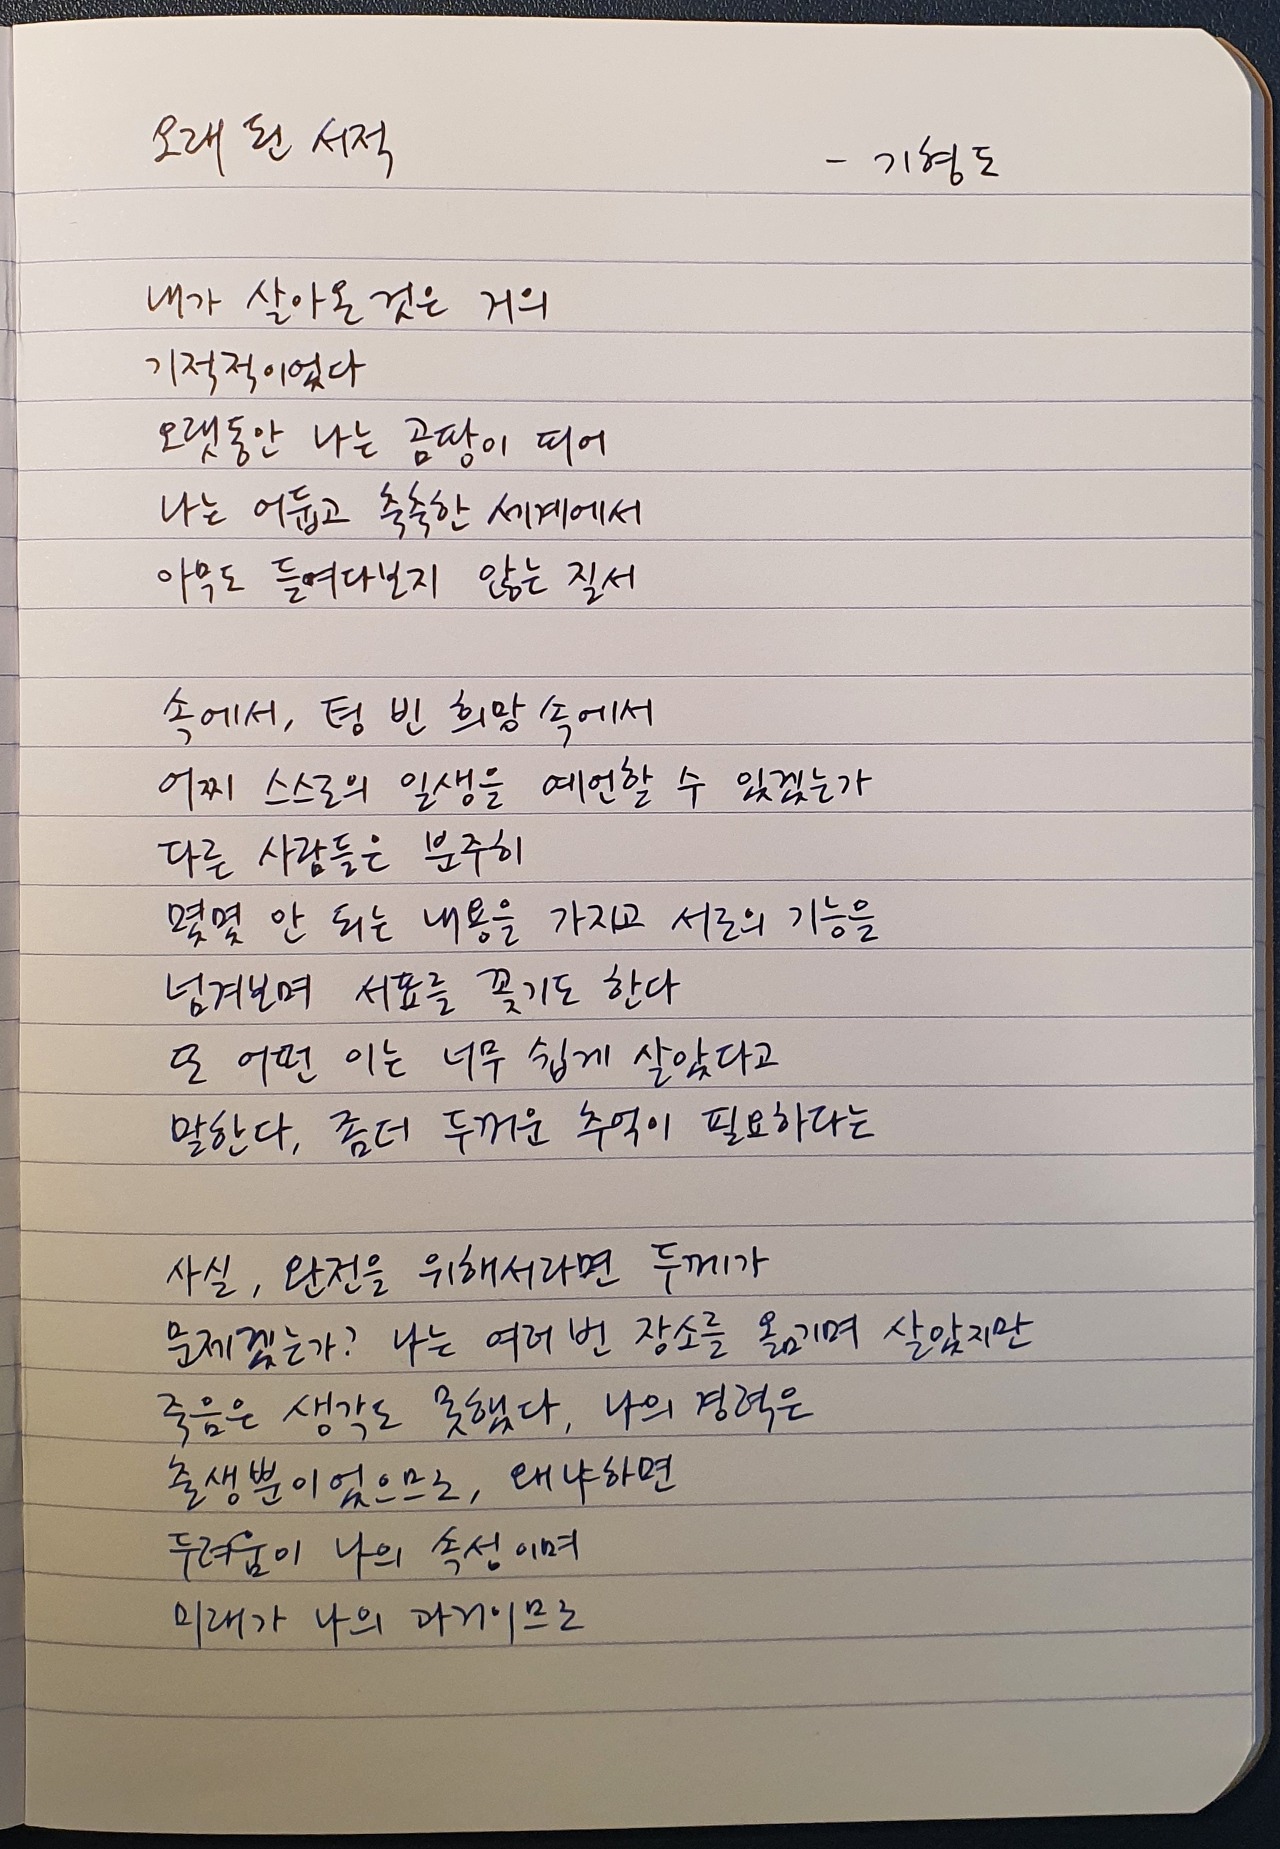 오래 된 서적
- 기형도
내가 살아온 것은 거의
기적적이었다
오랫동안 나는 곰팡이 피어
나는 어둡고 축축한 세계에서
아무도 들여다보지 않는 질서
속에서, 텅 빈 희망 속에서
어찌 스스로의 일생을 예언할 수 있겠는가
다른 사람들은 분주히
몇몇 안 되는 내용을 가지고 서로의 기능을
넘겨보며 서표를 꽂기도 한다
또 어떤 이는 너무 쉽게 살았다고
말한다, 좀더 두꺼운 추억이 필요하다는
사실, 완전을 위해서라면 두께가
문제겠는가? 나는 여러 번 장소를 옮기며 살았지만
죽음은 생각도 못했다, 나의 경력은
출생뿐이었으므로, 왜냐하면
두려움이 나의 속성이며
미래가 나의 과거이므로